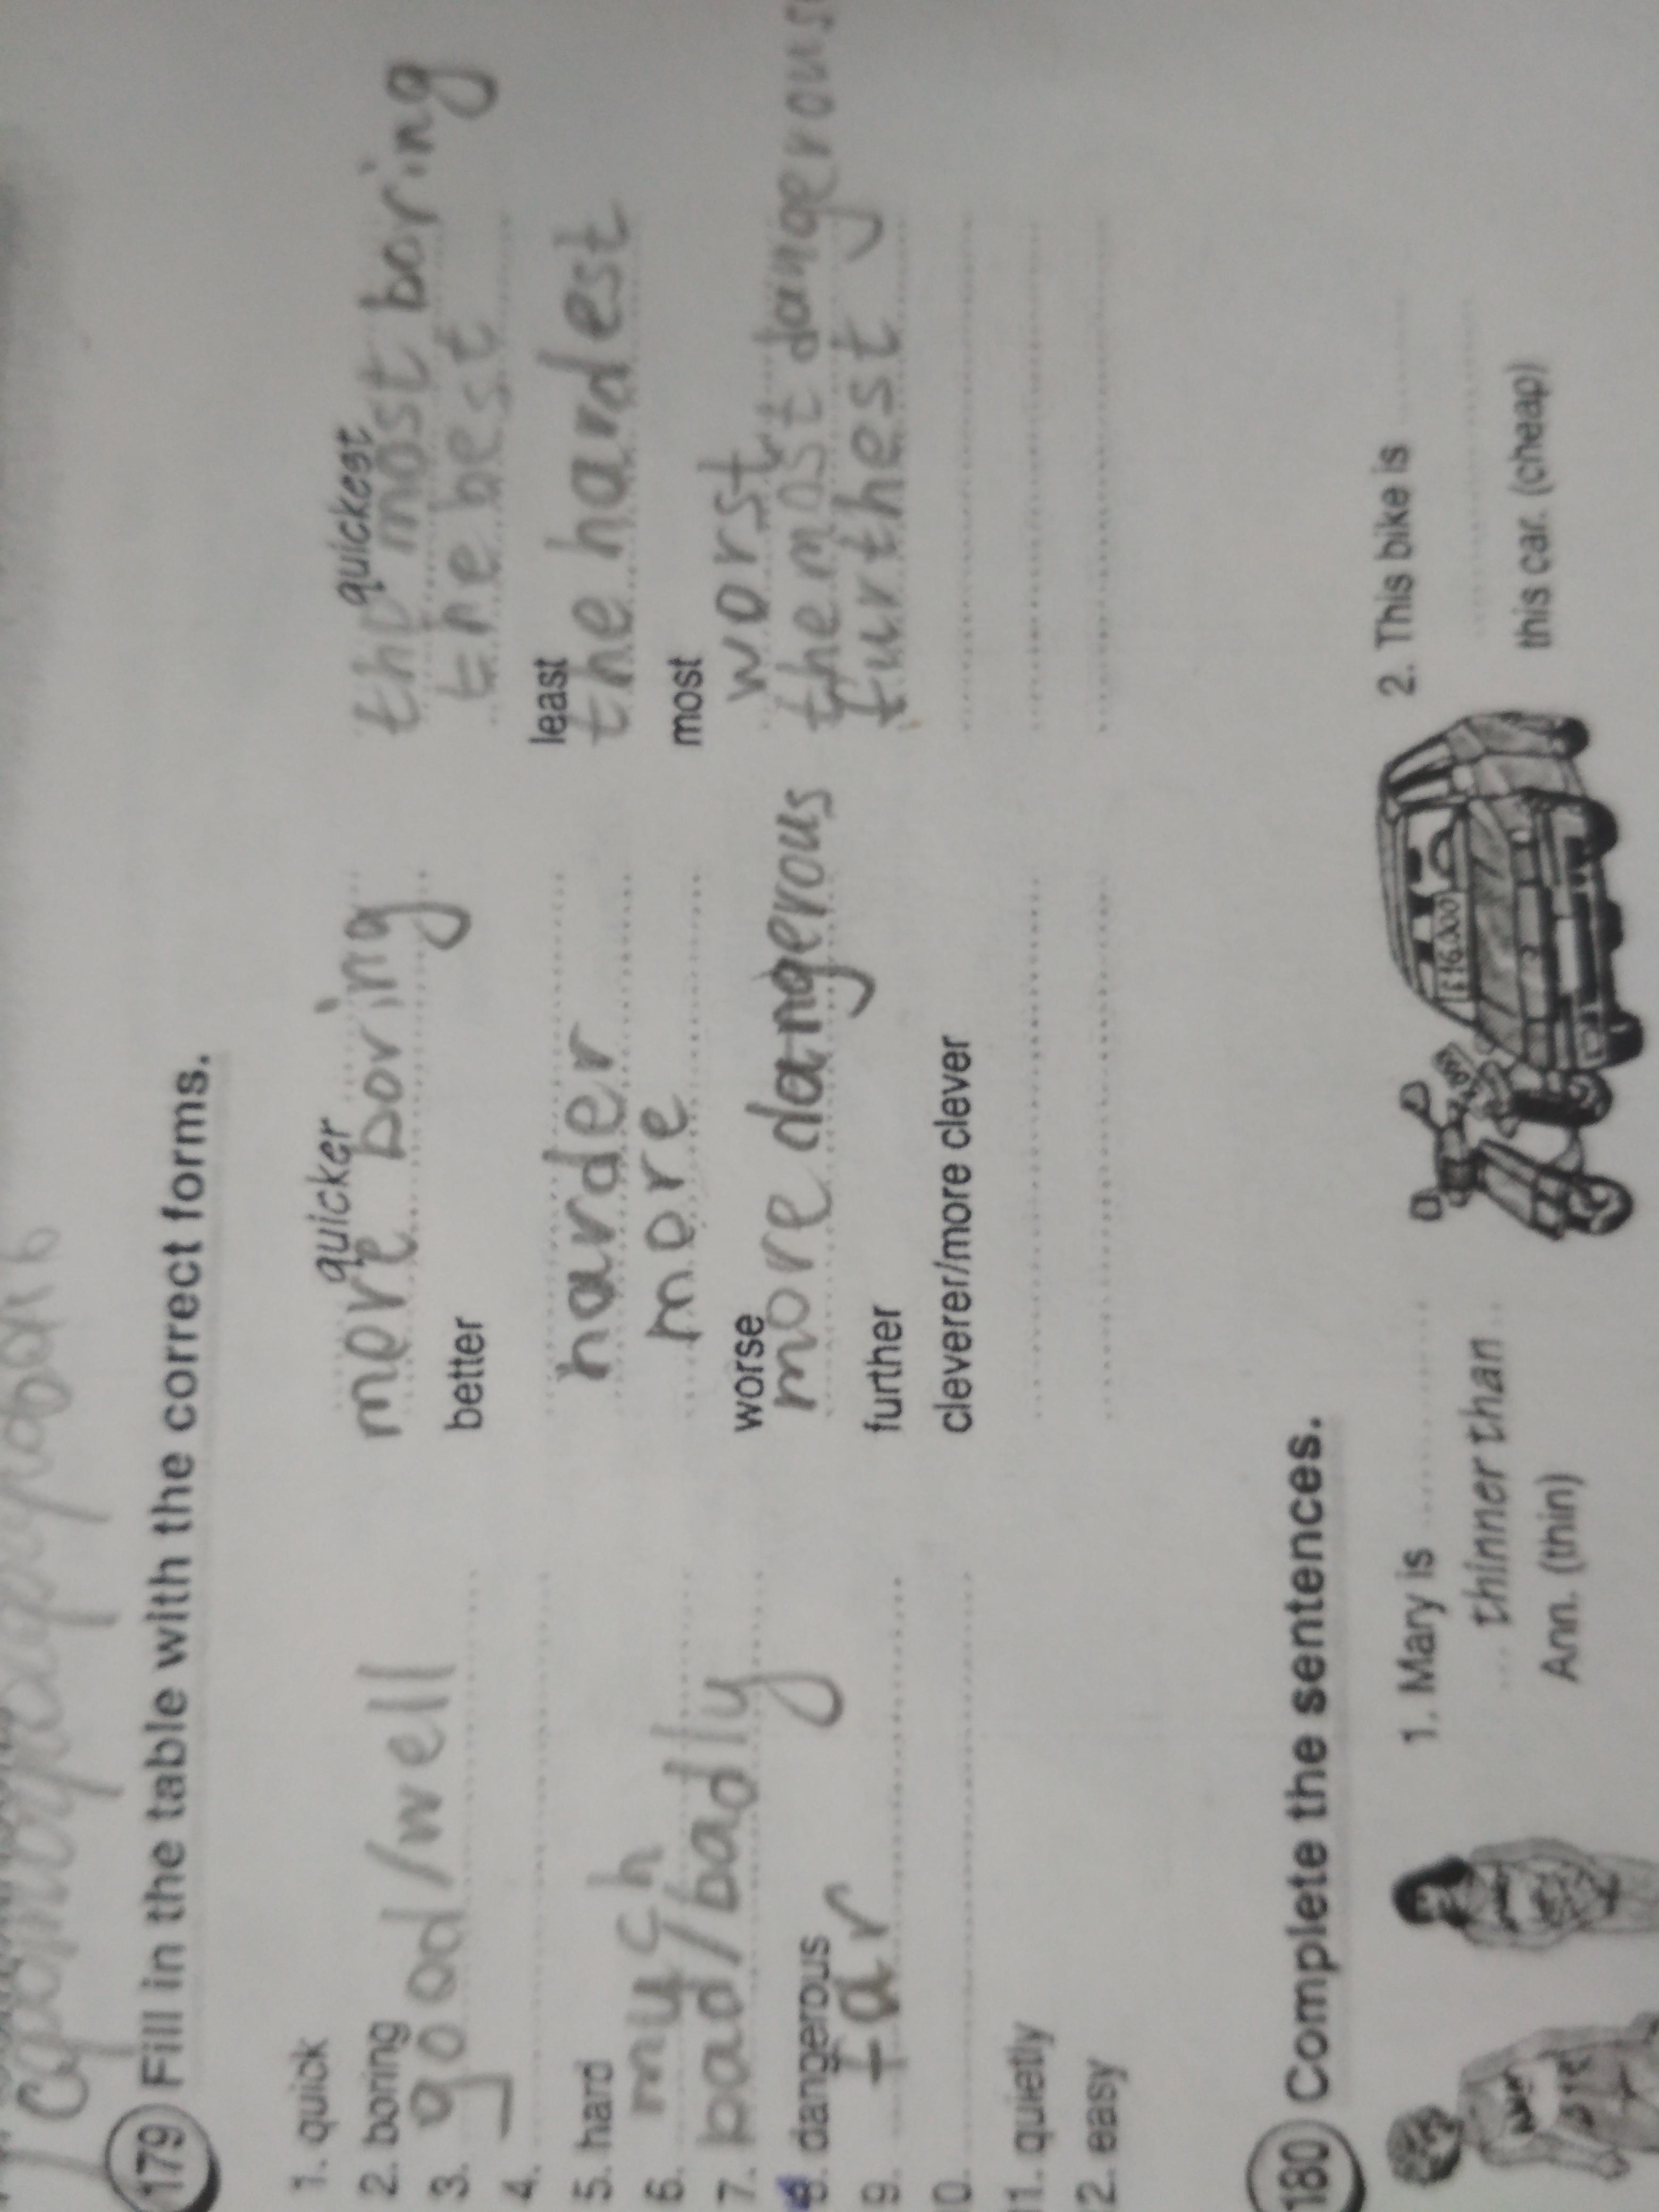 179 Fill in the table with the correct forms.
1. quick quicker quickest
2. boring more boring the most boring
3. good/well better the best
4. least
5. hard harder the hardest
6. much more most
7. bad/badly worse worst
8. dangerous more dangerous the most dangerous
9. far further furthest
10. cleverer/more clever
11. quietly
12. easy
180 Complete the sentences.
1. Mary is
thinner than
Ann. (thin)
£16,000
2. This bike is
this car. (cheap)